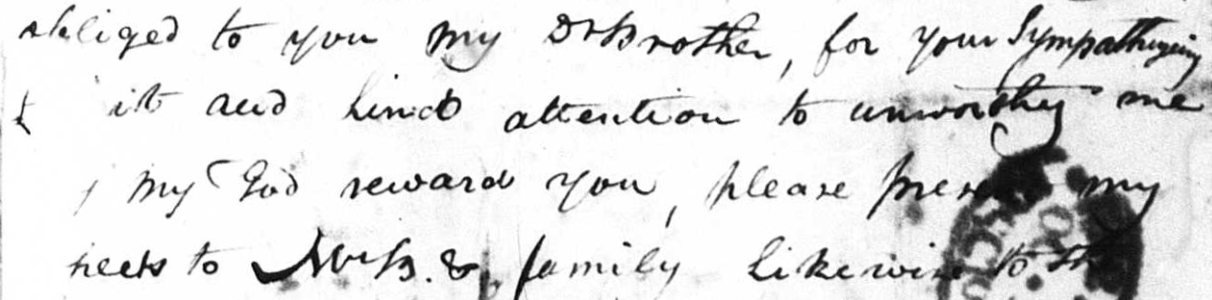 obliged to you my Dr Brother, for your Sympathizing
it and kind attention to unworthy me
, my God reward you, please present my
pects to Mrs B. & family likewise to th